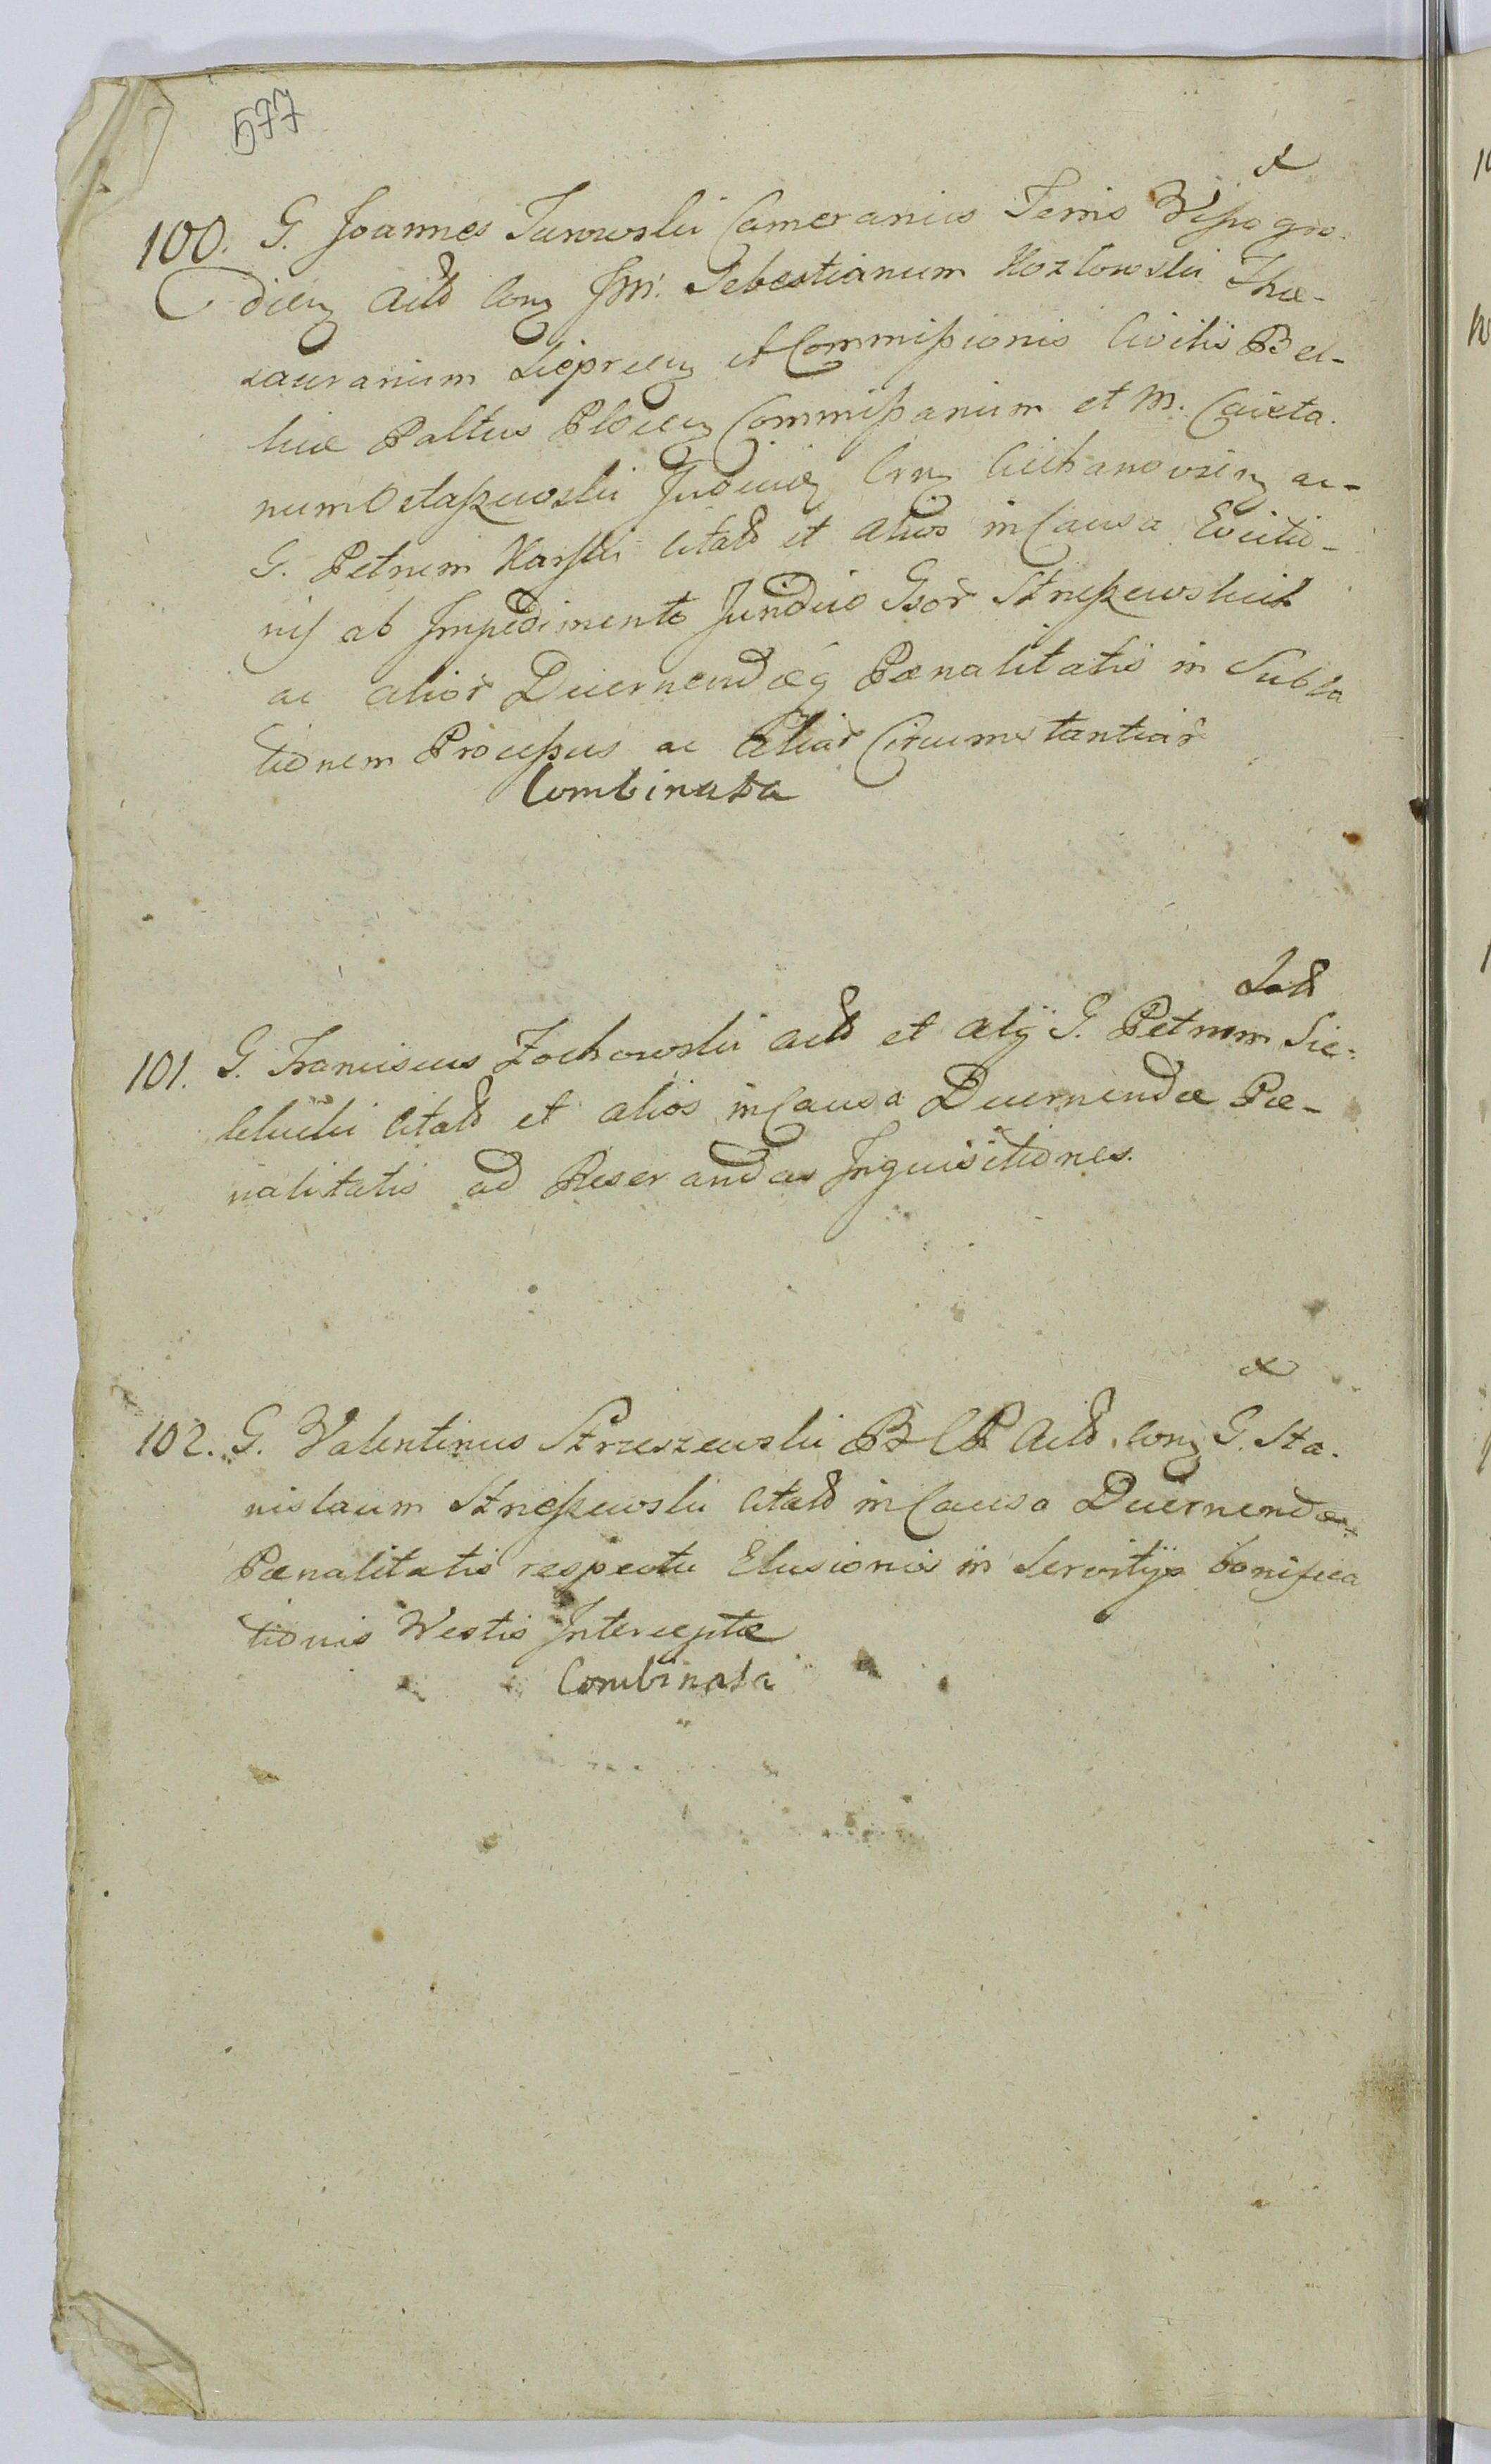 577
100. G. Joannes Turowski Camerarius Terris Wyssogro-
dien Actd Con JM. Sebestianum Kozlowski The-
saurarium Sieprcen et Commissionis Civilis Bel-
licæ Paltus Plocen Commissarium et M. Caieta-
num Ostaszewski Judicem Cen Ciechanovien ac
G. Petrum Karski Citatd et alios in Causa Evictio-
nis ab Impedimento Juridico Gsor Strzeszewskich
ac alior Decernendæq Pænalitatis in Subla
tionem Processus ac aliar Circumstantiar
Combinata
101. G. Franciscus Zochowski actd et alij G. Petrum Sie-
klucki Citatd et alios in Causa Decernendæ Pæ-
nalitatis ad Reserandas Inquisitiones.
102. G. Valentinus Strzeszewski BCP Actd con G. Sta-
nislaum Strzeszewski Citatd in Causa Decernendæ
Pænalitatis respectu Elusionis in Servitijs bonifica
tionis Westis Interceptæ
Combinata